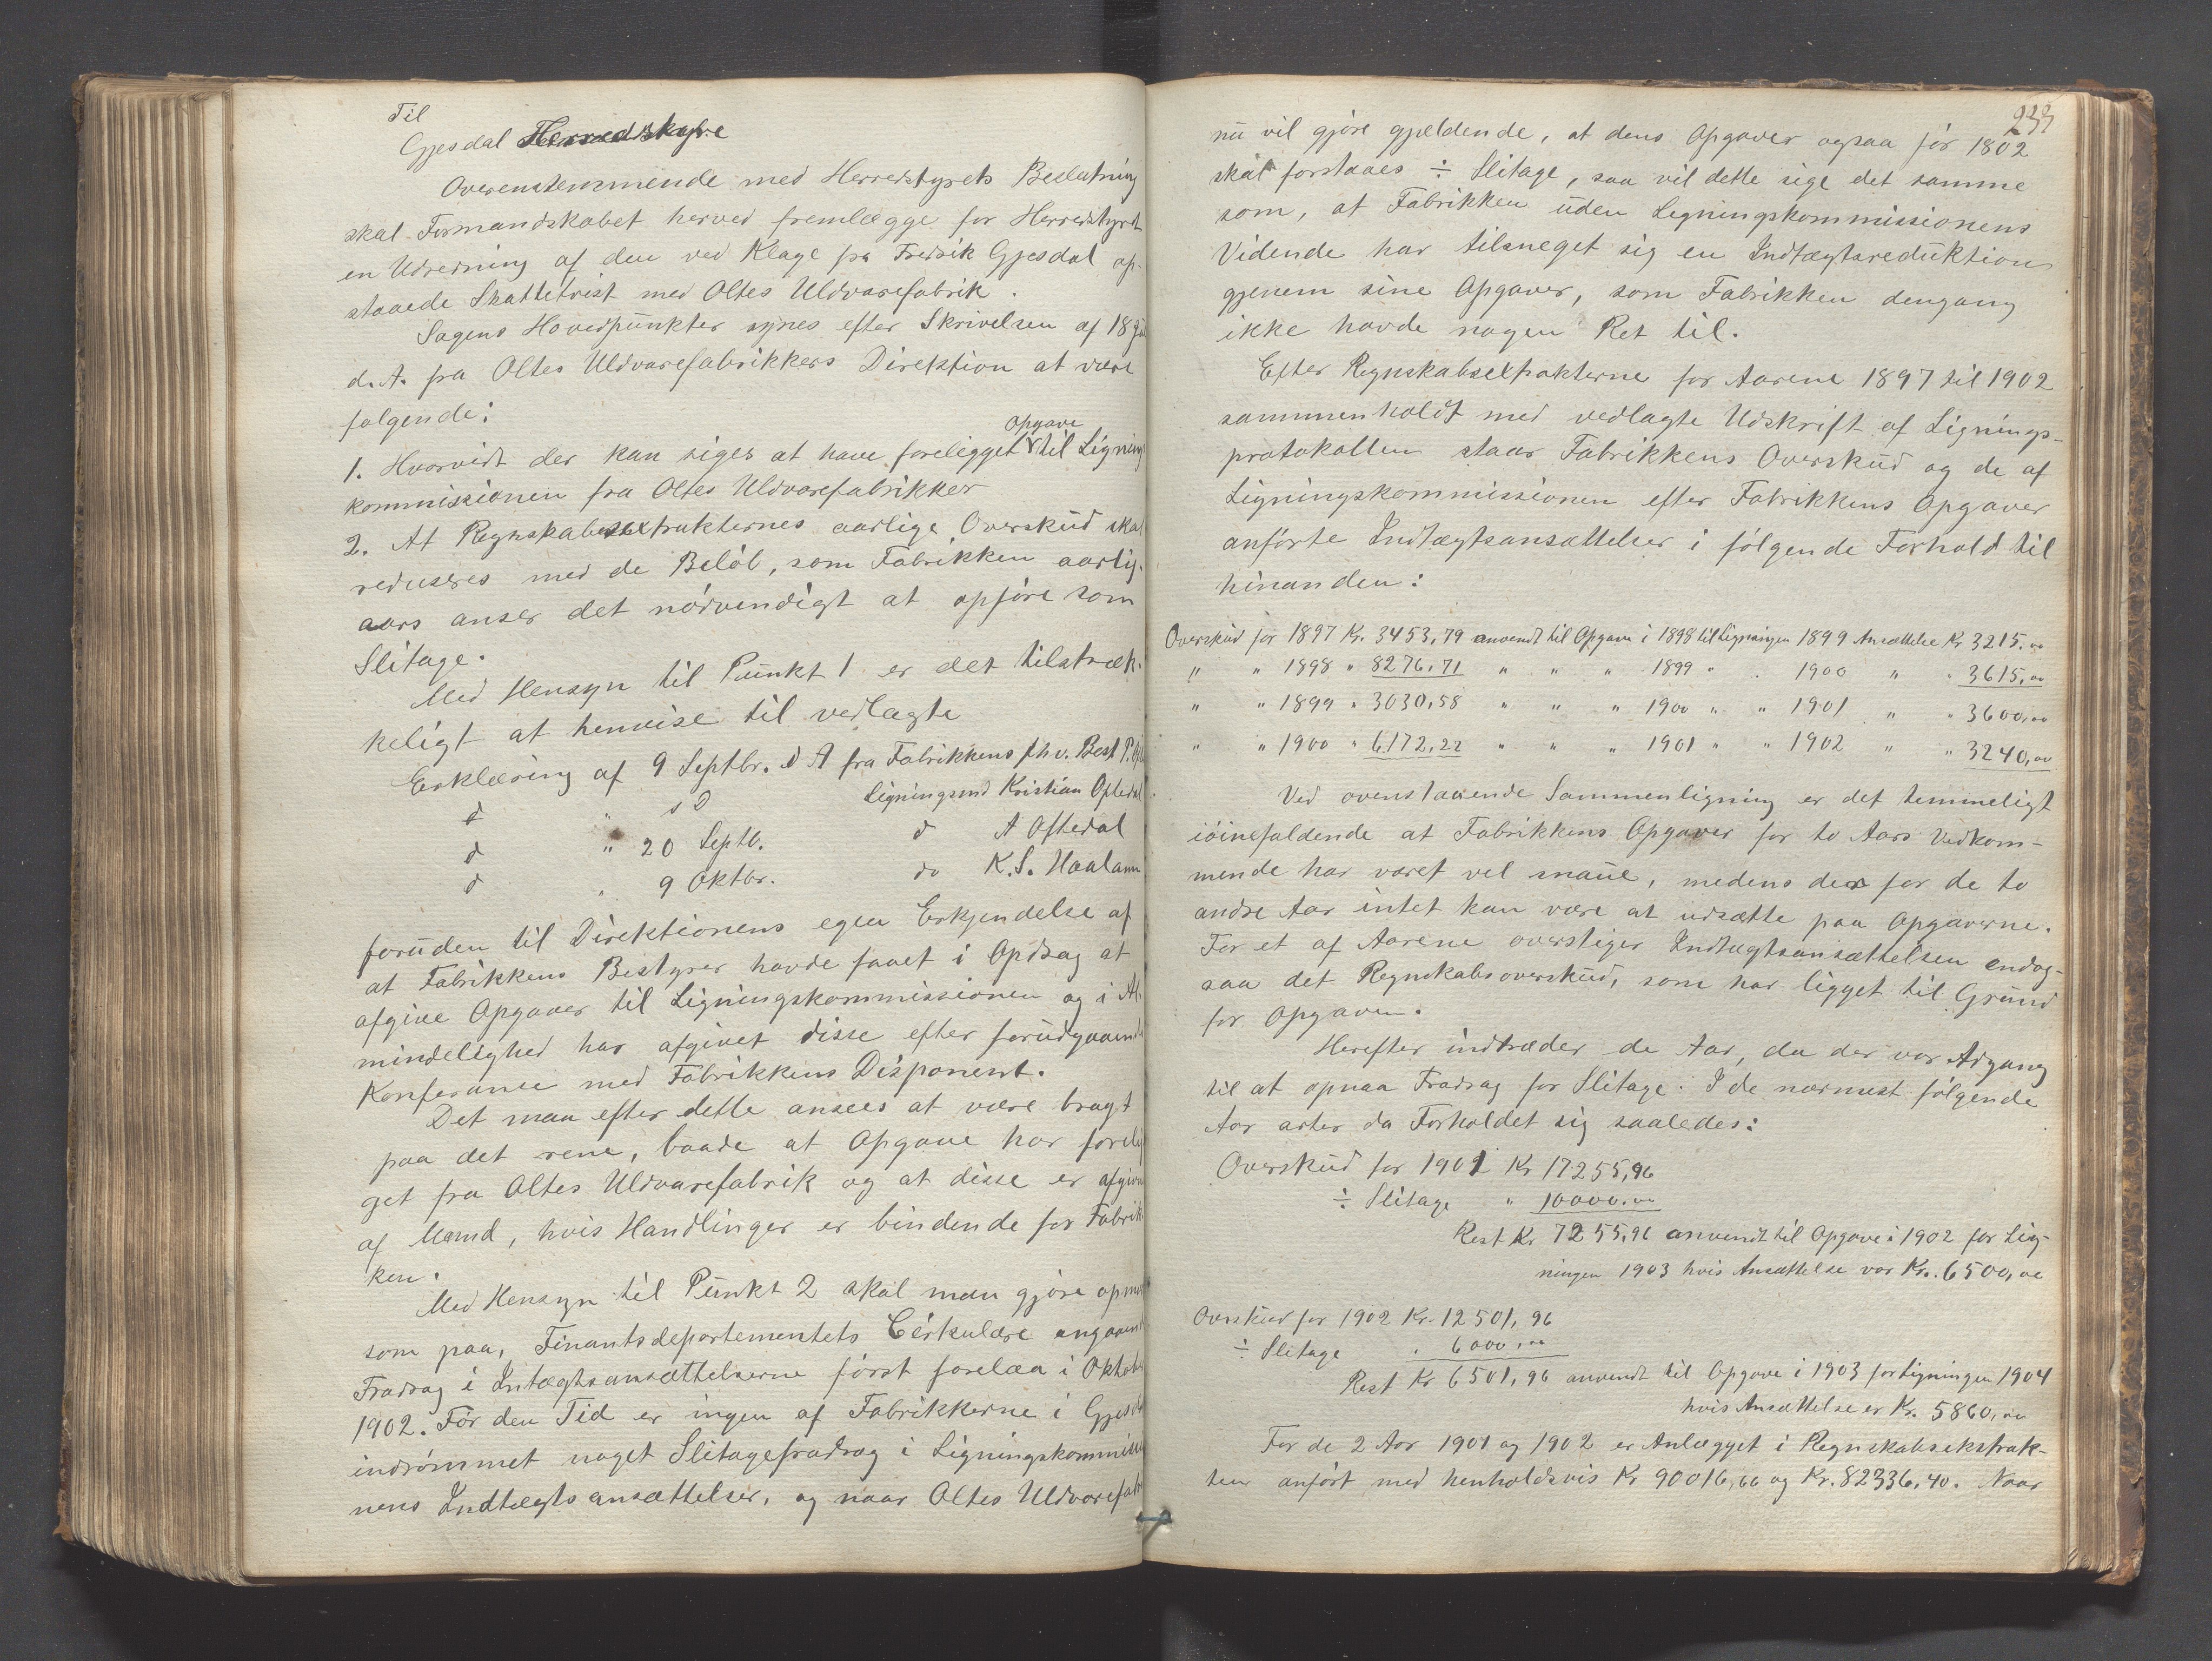 Til
Gjesdal Herredstyre
Overenstemmende med Herredstyrets Beslutning
skal Formandskabet herved fremlægge for Herredstyret
en Udredning af den ved Klage fra Fredrik Gjesdal op-
staaede Skattetvist med Oltes Uldvarefabrik.
Sagens Hovedpunkter synes efter Skrivelsen af 18
d. A. fra Oltes Uldvarefabrikkers Direktion at være
følgende:
1. Hvorvidt der kan siges at have foreligget Opgave til Ligning
kommissionen fra Oltes Uldvarefabrikker
2. At Regnskabsextrakternes aarlige Overskud skal
reduseres med de Beløb, som Fabrikken aarlig-
aars anser det nødvendigt at opføre som
Slitage.
Med Hensyn til Punkt 1 er det tilstræk-
keligt at henvise til vedlagte
Erklæring af 9 Septbr. d A fra Fabrikkens fhv. Best P.
d " s D Ligningsmd Kristian Oftedal
d " 20 Septb. d A Oftedal
d " 9 Oktbr. do K. S. Haaland
foruden til Direktionens egen Erkjendelse af
at Fabrikkens Bestyrer havde faaet i Opdrag at
afgive Opgaver til Ligningskommissionen og i Al-
mindelighed har afgivet disse efter forudgaaende
Konferanse med Fabrikkens Disponent.
Det maa efter dette ansees at være bragt
paa det rene, baade at Opgave har forelig
get fra Oltes Uldvarefabrik og at disse er afgivne
af Mænd, hvis Handlinger er bindende for Fabrik
ken.
Med Hensyn til Punkt 2 skal man gjøre opmærk
som paa, Finantsdepartementets Cirkulære angaaende
Fradrag i Intægtsansættelserne først forelaa i Oktober
1902. Før den Tid er ingen af Fabrikkerne i Gjesdal
indrømmet noget Slitagefradrag i Ligningskommissio
nens Indtægtsansættelser, og naar Oltes Uldvarefabrik
233
nu vil gjøre gjældende, at dens Opgaver ogsaa før 1802
skal forstaaes ÷ Slitage, saa vil dette sige det samme
som, at Fabrikken uden Ligningskommissionens
Vidende har tilsneget sig en Indtægtsreduktion
gjenem sine Opgaver, som Fabrikken dengang
ikke havde nogen Ret til.
Efter Regnskabsextrakterne for Aarene 1897 til 1902
sammenholdt med vedlagte Udskrift af Lignings-
protokollen staar Fabrikkens Overskud og de af
Ligningskommissionen efter Fabrikkens Opgaver
anførte Indtægtsansættelser i følgende Forhold til
hinanden:
Overskud for 1897 Kr. 3453,79 anvendt til Opgave i 1898 til Ligningen 1899 Ansættelse Kr 3215.00
" " 1898 " 8276,71 " " " 1899 " " 1900 " " 3615,00
" " 1899 " 3030,58 " " " 1900 " " 1901 " " 3600,00
" " 1900 " 6172,22 " " " 1901 " " 1902 " " 3240,00
Ved ovenstaaende Sammenligning er det temmeligt
iøinefaldende at Fabrikkens Opgaver for to Aars Vedkom-
mende har været vel snaue, medens der for de to
andre Aar intet kan være at udsætte paa Opgaverne.
For et af Aarene overstiger Indtægtsansættelsen endog-
saa det Regnskabsoverskud, som har ligget til Grund
for Opgaven.
Herefter indtræder de Aar, da der var Adgang
til at opnaa Fradrag for Slitage. I de nærmest følgende
Aar arter da Forholdet sig saaledes:
Overskud for 1901 Kr 17255,96
÷ Slitage " 10000.00
Rest Kr 7255,96 anvendt til Opgave i 1902 for Lig-
ningen 1903 hvis Ansættelse var Kr. 6500,00
Overskud for 1902 Kr. 12501,96
÷ Slitage " 6000,00
Rest Kr 6501,96 anvendt til Opgave i 1903 for Ligningen 1904
hvis Ansættelse er Kr. 5860,00
For de 2 Aar 1901 og 1902 er Anlægget i Regnskabsekstrak-
ten anført med henholdsvis Kr 90016,66 og Kr. 82336,40. Naar